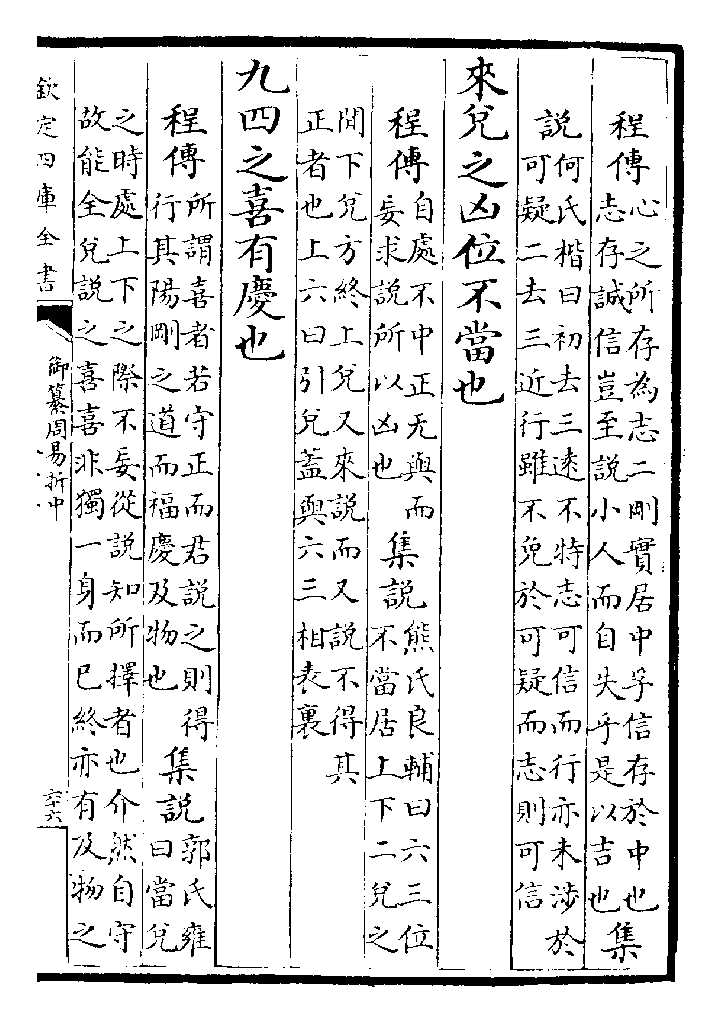 程傳心之所存為志二剛實居中孚信存於中也集
志存誠信豈至說小人而自失乎是以吉也
說何氏楷曰初去三遠不特志可信而行亦未涉於
可疑二去三近行雖不免於可疑而志則可信
來兌之凶位不當也
程傳自處不中正无與而
妄求說所以凶也
集說熊氏良輔曰六三位
不當居上下二兌之
間下兌方終上兌又來說而又說不得其
正者也上六曰引兌蓋與六三相表裏
九四之喜有慶也
程傳所謂喜者若守正而君說之則得
行其陽剛之道而福慶及物也
集說郭氏雍
曰當兌
之時處上下之際不妄從說知所擇者也介然自守
故能全兌說之喜喜非獨一身而已終亦有及物之
欽定四庫全書
御纂周易折中
六十六